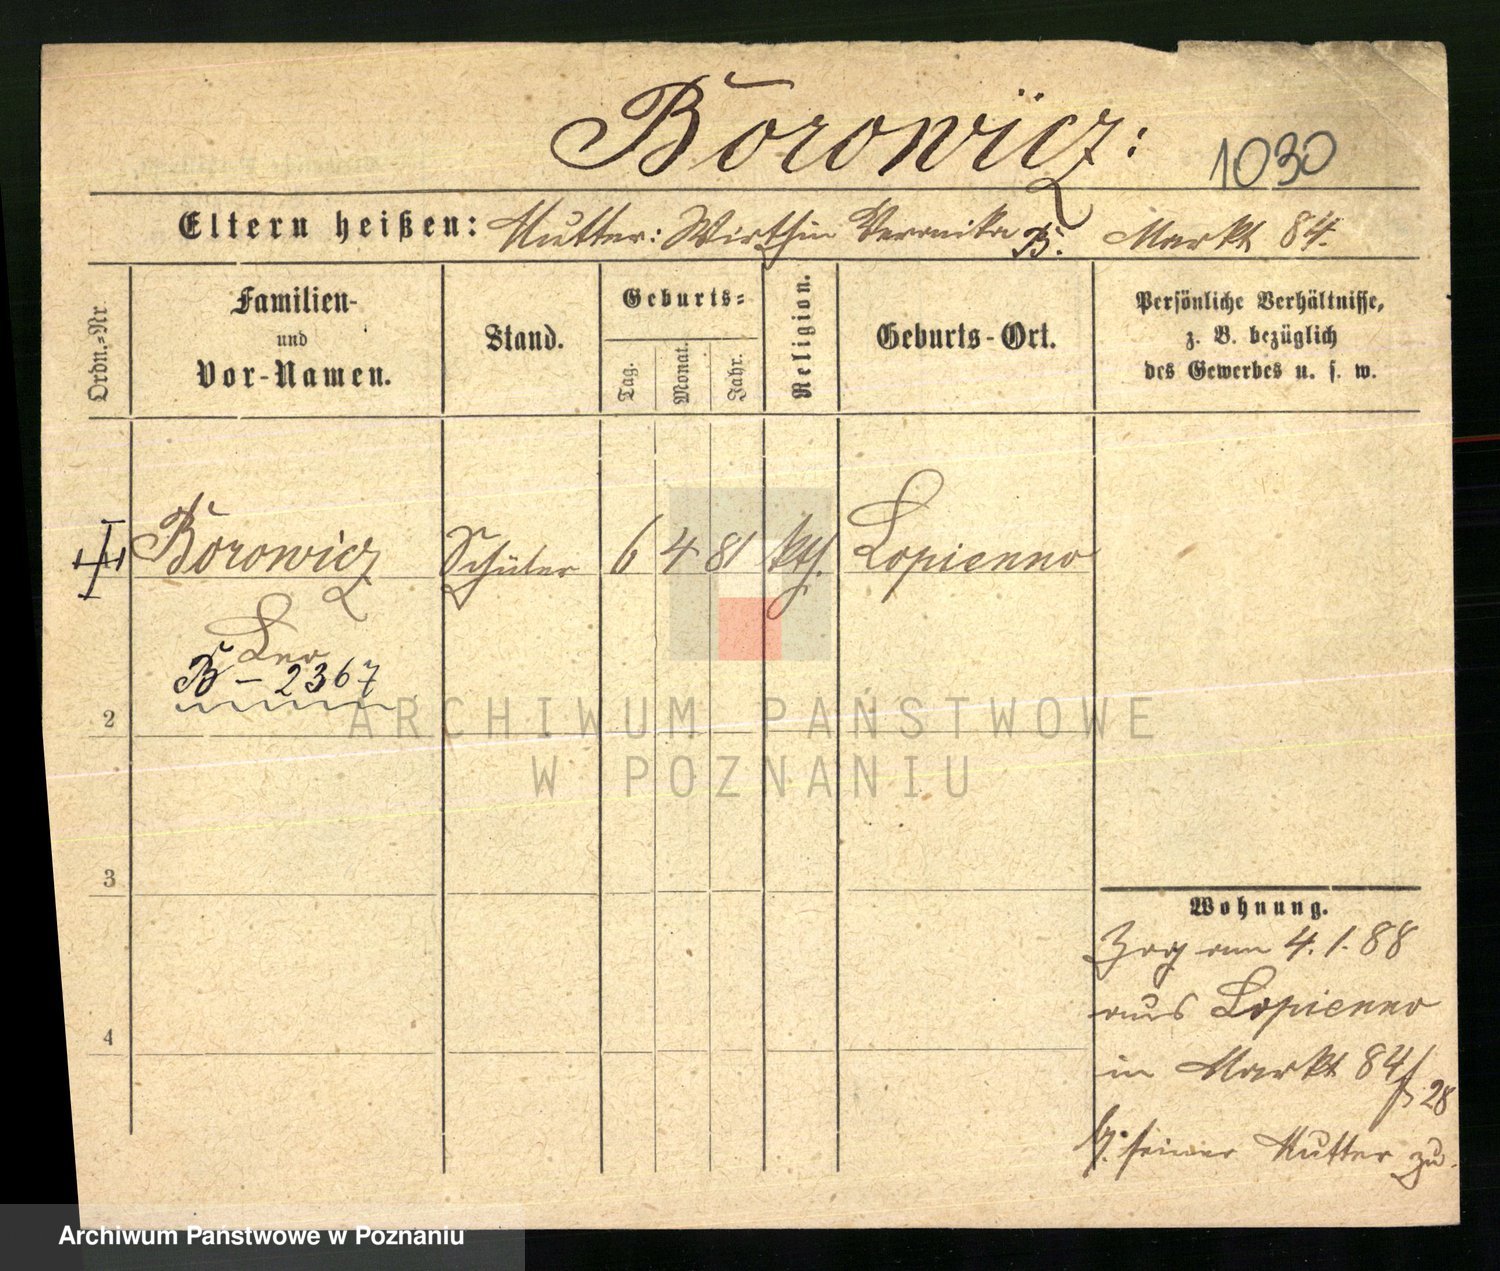 Borowicz:
1030
Eltern heißen: Mutter: Wirthin Veronika B. Markt 84.
Ordn.-Nr
Familien-
und
Vor-Namen.
Stand.
Geburts-
Tag.
Monat.
Jahr.
Religion.
Geburts-Ort.
Persönliche Verhältnisse,
z. B. bezüglich
des Gewerbes u. s. w.
Borowicz Schüler 6 4 81 kth. Lopienno
Leo
B - 2367
2
3
4
Wohnung.
Zog am 4.1.88
aus Lopienno
in Markt 84/28
seiner Mutter zu.
ARCHIWUM PAŃSTWOWE
W POZNANIU
Archiwum Państwowe w Poznaniu